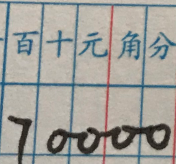 百十元角分
70000